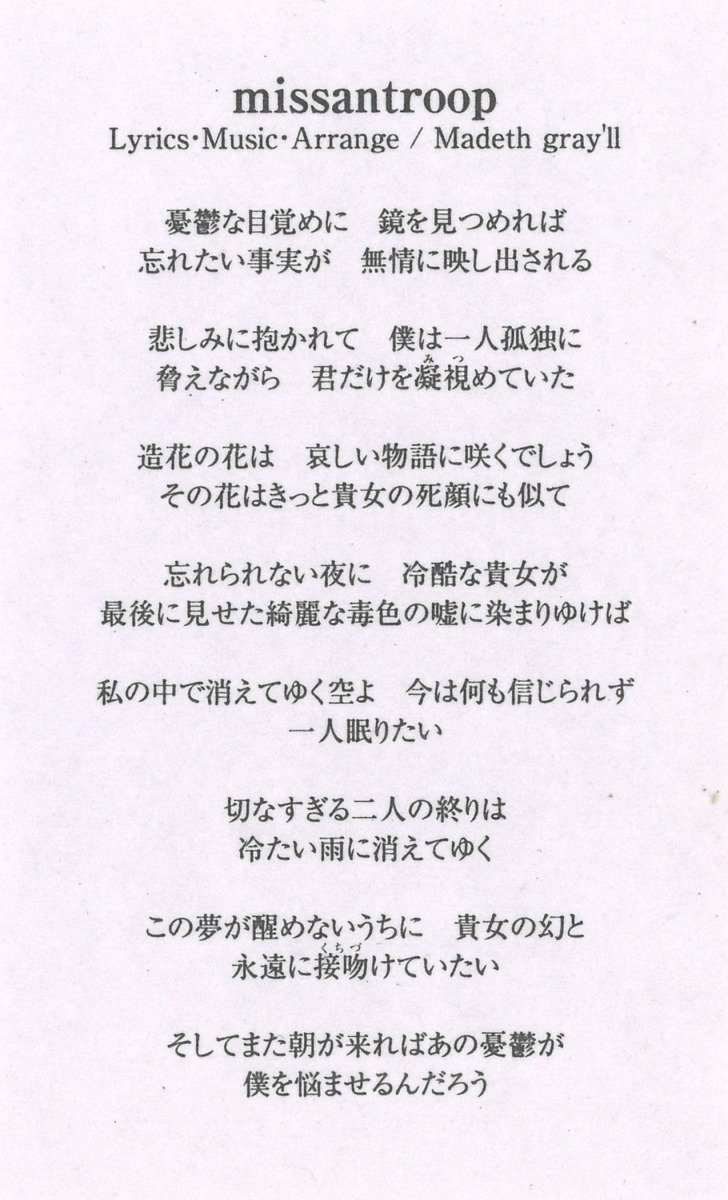 missantroop
Lyrics・Music・Arrange / Madeth gray'll
憂鬱な目覚めに　鏡を見つめれば
忘れたい事実が　無情に映し出される
悲しみに抱かれて　僕は一人孤独に
みつ
脅えながら　君だけを凝視めていた
造花の花は　哀しい物語に咲くでしょう
その花はきっと貴女の死顔にも似て
忘れられない夜に　冷酷な貴女が
最後に見せた綺麗な毒色の嘘に染まりゆけば
私の中で消えてゆく空よ　今は何も信じられず
一人眠りたい
切なすぎる二人の終りは
冷たい雨に消えてゆく
この夢が醒めないうちに　貴女の幻と
くちづ
永遠に接吻けていたい
そしてまた朝が来ればあの憂鬱が
僕を悩ませるんだろう